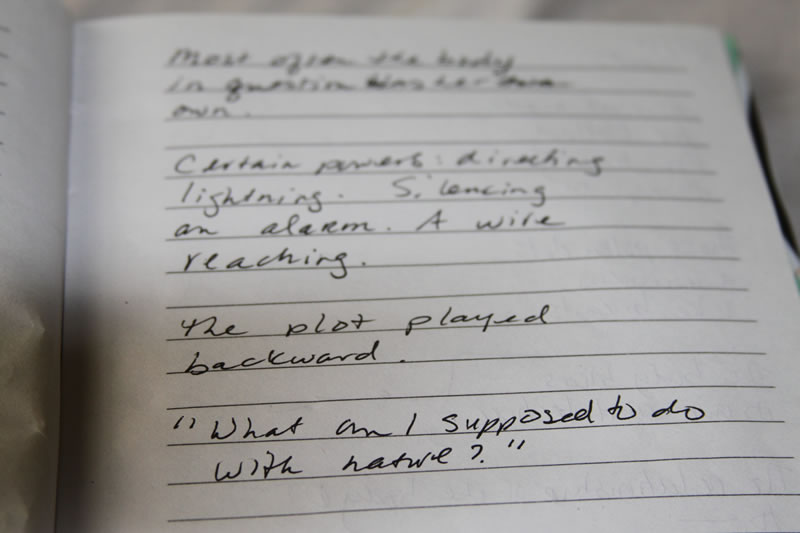 Most often the body
in question was her own
own.
Certain powers: directing
lightning. Silencing
an alarm. A wire
reaching.
The plot played
backward.
"What am I supposed to do
with nature?"